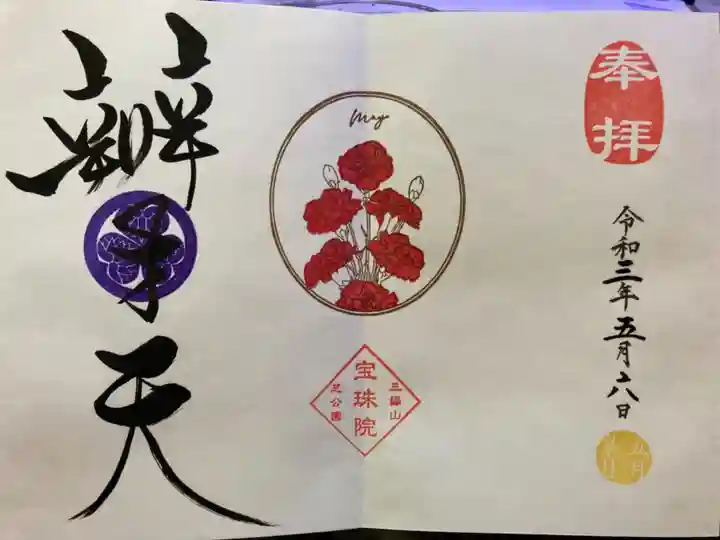 奉拝
令和三年五月六日
五月
May
三縁山
宝珠院
芝公園
辯才天